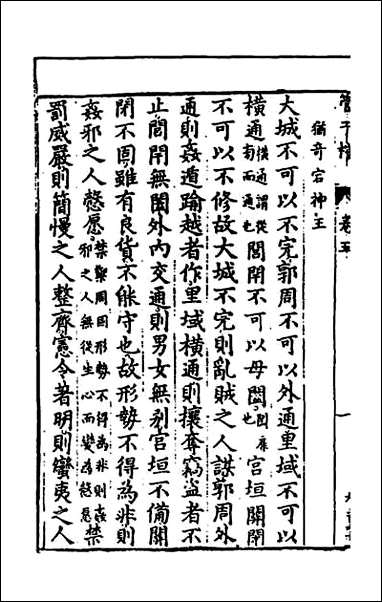 卷五
大城不可以不完郭周不可以外通里域不可以
橫通橫通謂從旁而通也閭閈不可以毋闔闔扉也宮垣關閉
不可以不修故大城不完則亂賊之人謀郭周外
通則姦遁踰越者作里域橫通則攘奪竊盜者不
止閭閈無闔外內交通則男女無別宮垣不備關
閉不固雖有良貨不能守也故形勢不得為非則
姦邪之人慤愿禁禦周固形勢不得為非則姦邪之人無從生心而變為慤愿禁
罰威嚴則簡慢之人整齊憲令著明則蠻夷之人